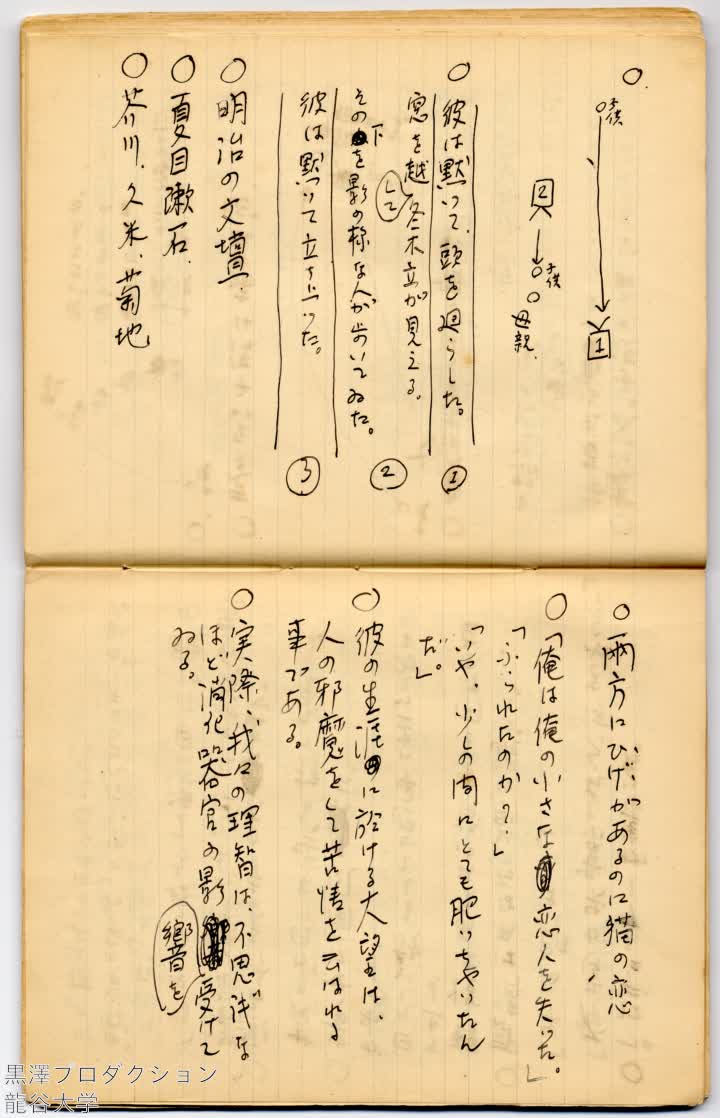 ○
子供
1
2
子供
母親、
○ 彼は黙いて、頭を廻らした。
①
窓を越して冬木立が見える。
その下を影の様な人が歩いてゐた。
②
彼は黙いて立ち上つた。
③
○ 明治の文壇、
○ 夏目漱石、
○ 芥川、久米、菊地
○ 両方にひげがあるのに猫の恋
○ 「俺は俺の小さな恋人を失つた。」
「ふられたのか?」
「いや、少しの間にとても肥つちやつたん
だ。」
○ 彼の生涯に於ける大望は、
人の邪魔をして苦情を云はれる
事である。
○ 実際、我々の理智は、不思議な
ほど消化器官の影響を受けて
ゐる。
黒澤プロダクション
龍谷大学